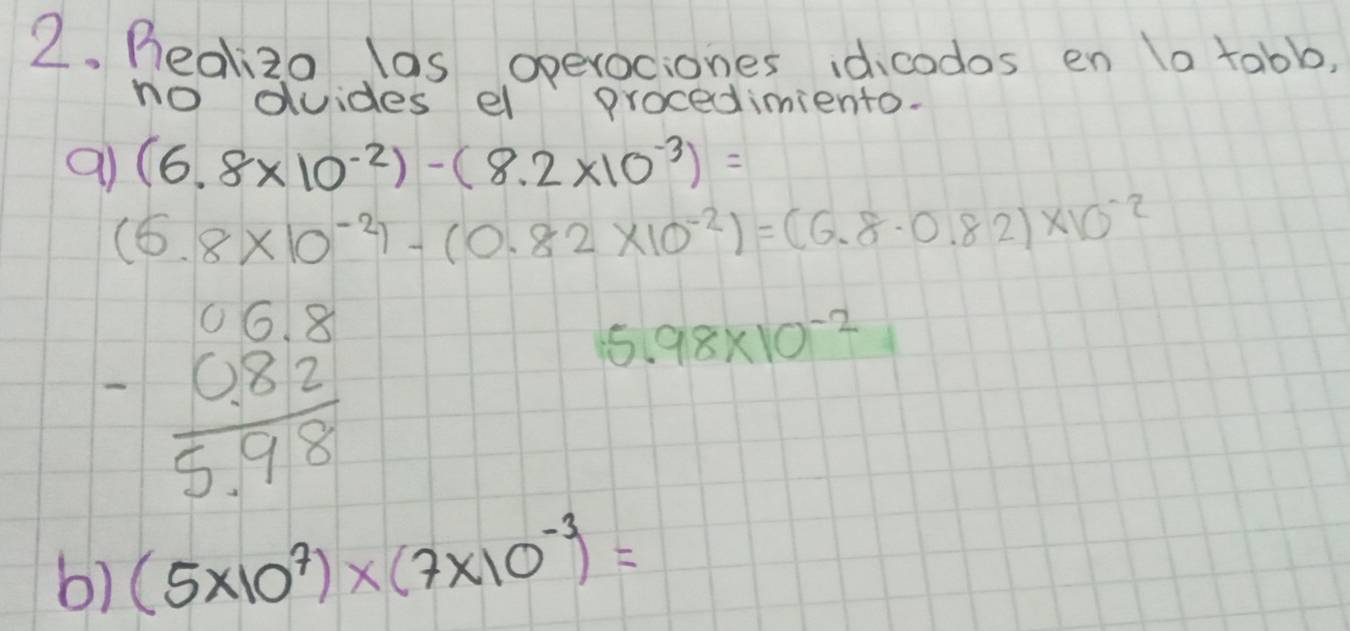 2. Realiza las operaciones idicadas en la tabla,
no olvides el procedimiento.
a) (6.8×10⁻²) - (8.2×10⁻³) =
(6.8×10⁻²) - (0.82×10⁻²) = (6.8-0.82)×10⁻²
06.8
- 0.82
5.98
5.98×10⁻²
b) (5×10⁷)×(7×10⁻³) =